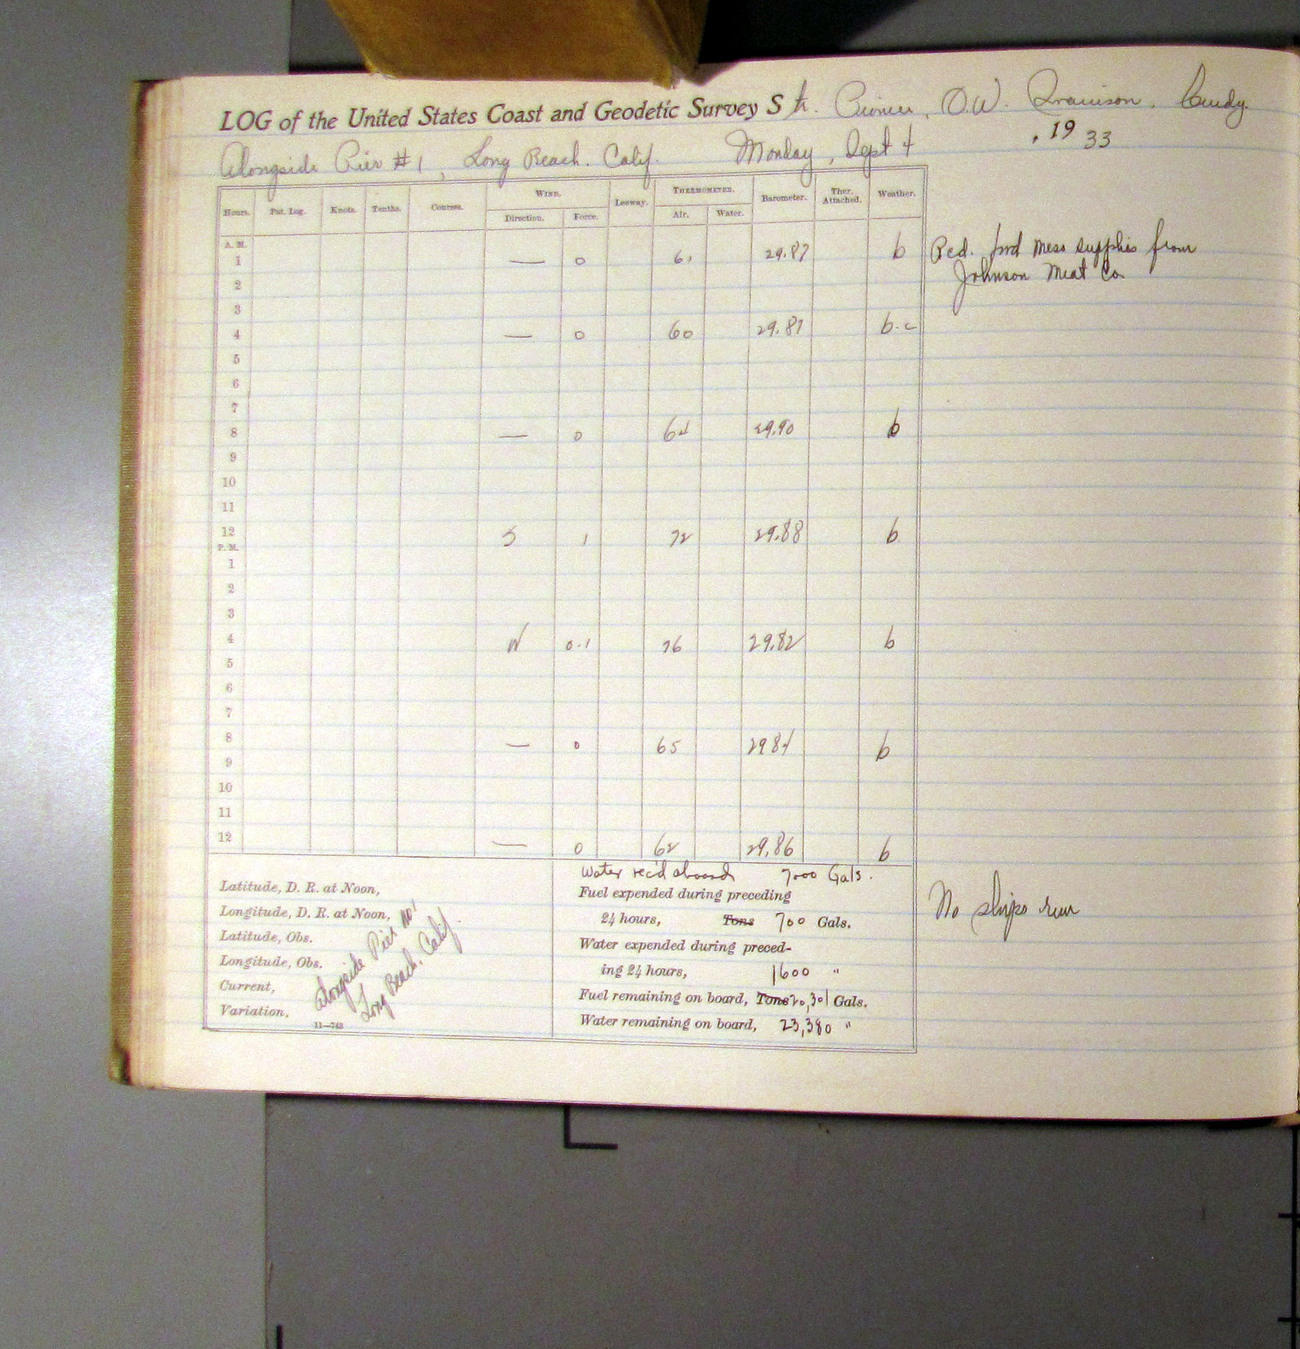 LOG of the United States Coast and Geodetic Survey Str. Pioneer, O.W. Comdg.
Alongside Pier #1, Long Beach. Calif. Monday, Sept 4, 1933
Hours. Pat. Log. Knots. Tenths. Courses. WIND. Leeway. THERMOMETER. Barometer. Ther. Attached. Weather.
Direction. Force. Air. Water.
A. M.
1 — 0 61 29.87 b Rcd. fwd mess supplies from
2 Johnson Meat Co.
3
4 — 0 60 29.87 b.c
5
6
7
8 — 0 64 29.90 b
9
10
11
12 S 1 72 29.88 b
P. M.
1
2
3
4 W 0.1 76 29.82 b
5
6
7
8 — 0 65 29 84 b
9
10
11
12 — 0 62 29.86 b
Water rec'd aboard 7000 Gals.
Latitude, D. R. at Noon,
Longitude, D. R. at Noon,
Latitude, Obs.
Longitude, Obs.
Current,
Variation,
Alongside Pier No 1
Long Beach, Calif.
11—743
Fuel expended during preceding
24 hours, Tons 700 Gals.
Water expended during preced-
ing 24 hours, 1600 "
Fuel remaining on board, Tons 20,301 Gals.
Water remaining on board, 23,380 "
No ships run